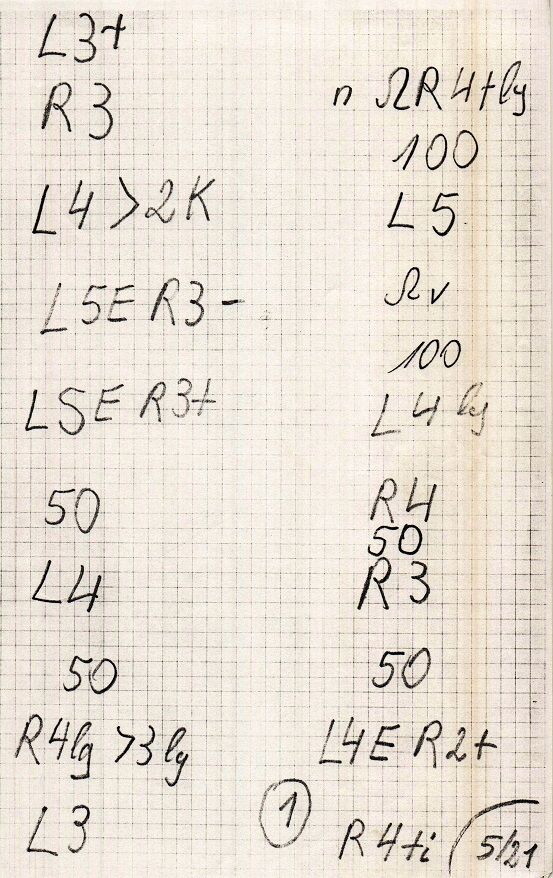 L3+
R3
L4 >2K
L5E R3-
L5E R3+
50
L4
50
R4lg >3lg
L3
n ΩR4+lg
100
L5
Ωv
100
L4 lg
R4
50
R3
50
L4E R2+
①
R4+i
5/21